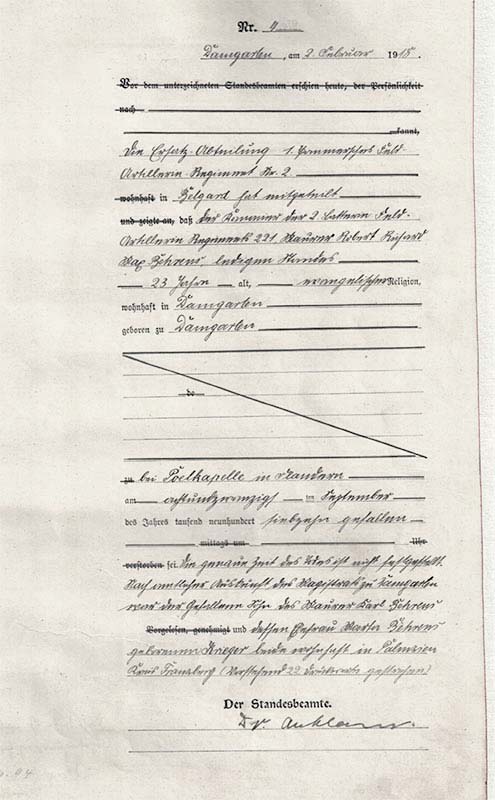 Nr. 4
Damgarten, am 2. Februar 1918.
Vor dem unterzeichneten Standesbeamten erschien heute, der Persönlichkeit
nach
kannt,
Die Ersatz-Abteilung 1. Pommersches Feld-
Artillerie-Regiment Nr. 2
wohnhaft in Belgard hat mitgeteilt
und zeigte an, daß der Kanonier der 2. Batterie Feld-
Artillerie Regiments 221, Maurer Robert Richard
Max Behrens ledigen Standes
23 Jahre alt, evangelischer Religion,
wohnhaft in Damgarten
geboren zu Damgarten
do
zu bei Poelkapelle in Flandern
am achtundzwanzigst im September
des Jahres tausend neunhundert siebzehn gefallen
mittags um Uhr
verstorben sei. Die genaue Zeit des Todes ist nicht festgestellt.
Nach amtlicher Auskunft des Magistrats zu Damgarten
war der Gefallene Sohn des Maurer Karl Behrens
Vorgelesen, genehmigt und dessen Ehefrau Berta Behrens
geborenen Krueger beide wohnhaft in
Kreis Franzburg (Vorstehend 22 Druckworte gestrichen)
Der Standesbeamte.
Dr. Anklam.